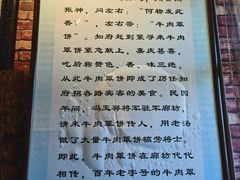 张神，问左右："何物发此
香"，左右答："牛肉罩
饼"知府赶到紧寻来牛肉
罩饼急忙献上，嘉庆甚喜，
吃后称赞色、香、味三绝，
从此牛肉罩饼即成了历任知
府招各路宾客的美食。民国
年间，冯玉祥将军驻军廊坊，
请来牛肉罩饼传人，用老汤
做了大量牛肉罩饼犒劳将士，
即此，牛肉罩饼在廊坊代代
相传，百年老字号的牛肉罩